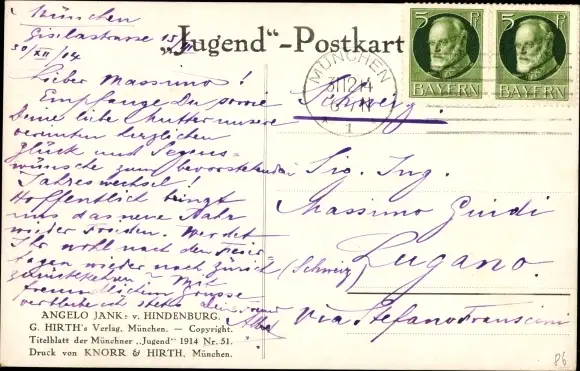 München
Giselastrasse 15/II
30/XII/14
„Jugend“-Postkart
5 P 5 P
BAYERN BAYERN
MÜNCHEN
31.12.14
1
Lieber Massimo!
Empfange Du sowie
Deine liebe Mutter unsere
vereinten herzlichen
Glück und Segens-
wünsche zum bevorstehenden
Jahreswechsel!
Hoffentlich bringt
uns das neue Jahr
wieder Frieden. Werdet
Ihr wohl nach den Feier-
tagen wieder nach Zürich
zurückkehren? Mit
freundlichem Grusse
verbleibe ich stets Dein
Schweiz.
Sig. Ing.
Massimo Guidi
Lugano.
(Schweiz)
Via Stefano Franscini
ANGELO JANK: v. HINDENBURG.
G. HIRTH's Verlag, München. — Copyright.
Titelblatt der Münchner „Jugend“ 1914 Nr. 51.
Druck von KNORR & HIRTH, München.
86